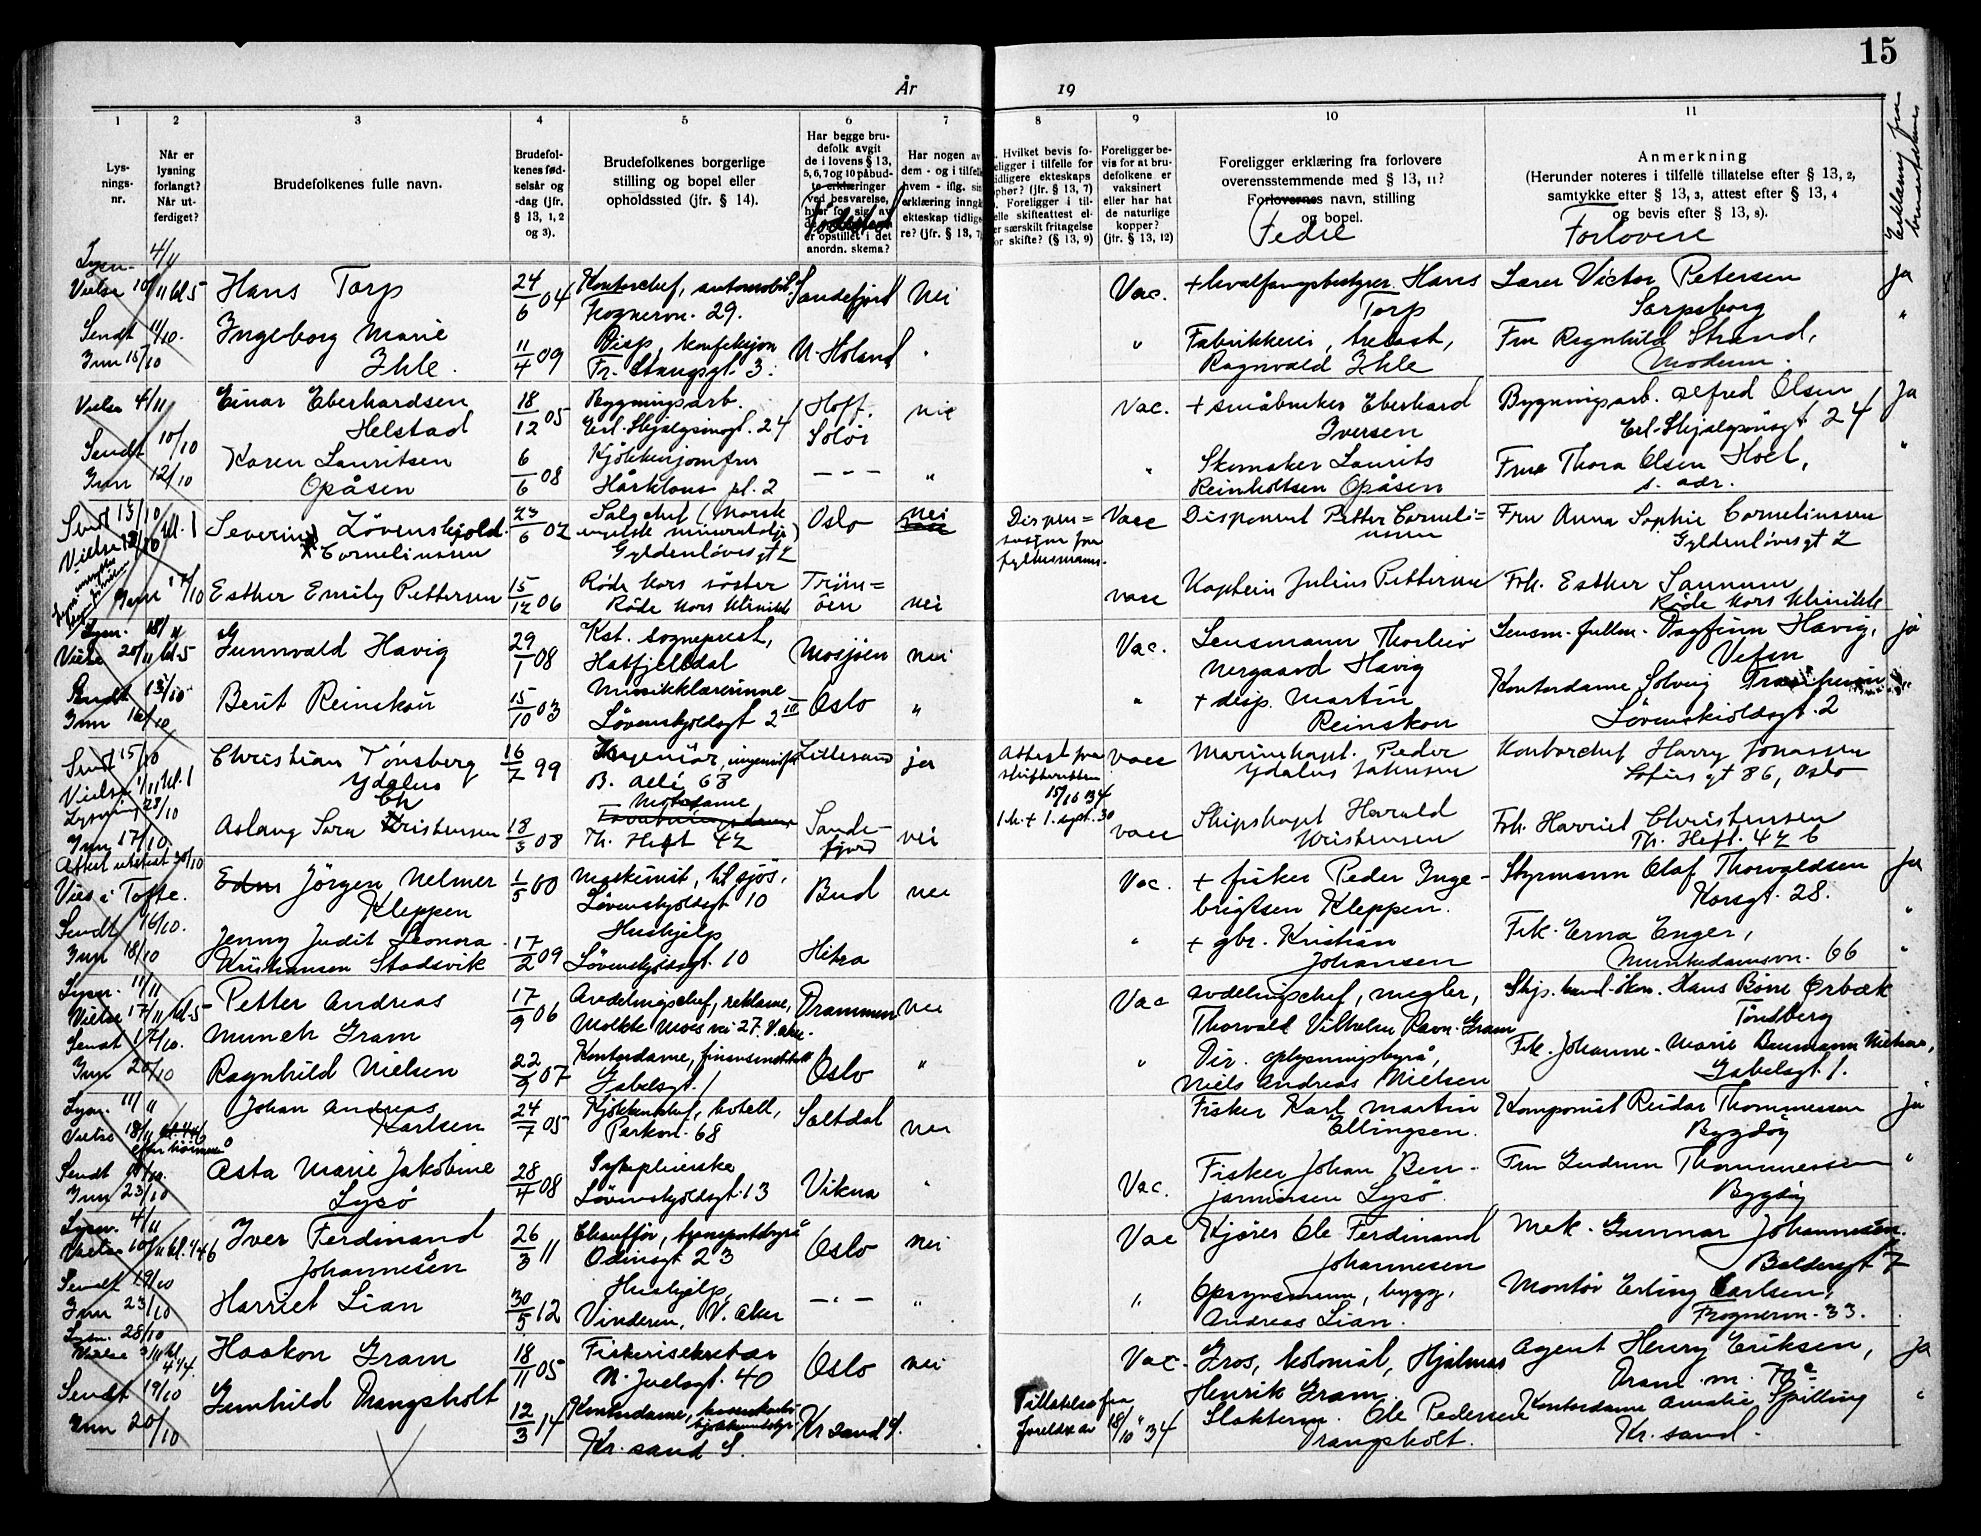 15
År
19
1
2
3
4
5
6
7
8
9
10
11
Lys-
nings-
nr.
Når er
lysning
forlangt?
Når ut-
ferdiget?
Brudefolkenes fulle navn.
Brudefol-
kenes fød-
selsår og
-dag (jfr.
§ 13, 1, 2
og 3).
Brudefolkenes borgerlige
stilling og bopel eller
opholdssted (jfr. § 14).
Har begge bru-
defolk avgit
de i lovens § 13,
5, 6, 7 og 10 påbud-
te erklæringer
ved besvarelse,
hver for sig, av
er opstillet i det
anordn. skema?
Fødested
Har nogen av
dem - og i tilfelle
hvem - iflg. sin
erklæring inngå
ekteskap tidlige
re? (jfr. § 13, 7)
Hvilket bevis fo-
religger i tilfelle for
tidligere ekteskaps
ophør? (jfr. § 13, 7)
Foreligger i til-
elle skifteattest el-
er særskilt fritagelse
or skifte? (§ 13, 9)
Foreligger be-
vis for at bru-
defolkene er
vaksinert
eller har hat
de naturlige
kopper?
(jfr. § 13, 12)
Foreligger erklæring fra forlovere
overensstemmende med § 13, 11?
Forlovernes navn, stilling
og bopel.
Fedre
Anmerkning
(Herunder noteres i tilfelle tillatelse efter § 13, 2,
samtykke efter § 13, 3, attest efter § 13, 4
og bevis efter § 13, 8).
Forlovere
Erklæring fra
brudefolkene
Lysn. 4/11
Vielse 10/11 kl. 5 Hans Torp 24/6 04 Kontorchef, automobil. Sandefjord Nei Vac. + hvalfangstbestyrer Hans Lærer Victor Petersen ja
Frognervn. 29. Torp Sarpsborg "
Sendt 11/10. Ingeborg Marie 11/4 09 Disp, konfeksjon N. Høland " " Fabrikkeier, trelast, Fru Ragnhild Strand,
Inn 15/10 Ihle. Fr. Stangsgt. 3. Ragnvald Ihle Modum.
Vielse 4/11 Einar Eberhardsen 18/12 05 Bygningsarb. Hoff, nei Vac. + småbruker Eberhard Bygningsarb. Alfred Olsen Ja
Helstad Erl. Skjalgsønsgt. 24 Solør Iversen Erl. Skjalgsønsgt 24
Sendt 10/10 Karen Lauritsen 6/6 08 Kjøkkenjomfru — " — " " Skomaker Laurits Frue Thora Olsen Hoel, "
Inn 12/10 Opåsen Hårklous pl. 2 Reinholtsen Opåsen s. adr.
Sendt 13/10 Severin Løvenskjold 23/6 02 Salgschef (Norsk Oslo nei Dispen= Vacc Disponent Petter Corneli= Fru Anna Sophie Corneliussen
Vielse 18/10 kl. 1 Corneliussen engelske mineralolje) sasjon fra ussen Gyldenløvesgt 2
Gyldenløvesgt 2 fylkesmann.
Inn 17/10 Esther Emily Pettersen 15/12 06 Røde Kors søster Trøm= nei vacc Kaptein Julius Pettersen Frk. Esther Sannum
Røde Kors Klinikk öen Røde Kors Klinikk
Lysn. 18/11
Vielse 20/11 kl. 5 Gunnvald Havig 29/1 08 Kst. sogneprest, Mosjøen nei Vac. Lensmann Thorleiv Lensm. fullm. Dagfinn Havig, ja
Hatfjelldal Nergaard Havig Vefsn
Sendt 13/10 Berit Reinskou 15/10 03 Musikklærerinne Oslo " " + disp. Martin Kontordame Solveig
Inn 16/10 Løvenskjoldsgt 2 III Reinskou Løvenskioldsgt. 2
Sendt 15/10 Christian Tønsberg 16/7 99 Ingeniør, Lillesand ja Attest fra vacc Marinekapt. Peder Kontorchef Harry Jonassen
Vielse 1/11 kl. 1 Ydalus B. Alle 63 skifteretten Ydalus Johnsen Sofies gt 86, Oslo
Lysning 23/10 15/10 34
Inn 17/10 Aslaug Sara Christensen 18/3 08 Th. Heft 42 Sande- nei 1. k. + 1. sept. 30 vacc Skipskapt Harald Frk. Harriet Christensen
Attest utstedt 30/10 fjord Christensen Th. Heft. 42 b
Vies i Tofte. Edm Jörgen Nelmer 1/5 00 Maskinist, til sjøs, Bud nei Vac. + fisker Peder Inge- Styrmann Olaf Thorvaldsen Ja
Kleppen Løvenskjoldsgt 10 brigtsen Kleppen. Korsgt. 28.
Sendt 16/10. Jenny Judit Leonora 17/2 09 Hushjelp Hitra " + gbr. Kristian Frk. Erna Enger, "
Inn 18/10 Kristiansen Stadsvik Løvenskjoldsgt. 10 Johansen Munkedamsvn. 66 "
Lysn. 11/11
Vielse 17/11 kl. 5 Petter Andreas 17/9 06 Avdelingschef, reklame, Drammen nei Vac avdelingschef, megler, Skip. Hans Bône Ørbæk
Sendt 17/10. Munch Gram Moltke Moes vei 27. V. Aker. Thorvald Vilhelm Ravn-Gram Tønsberg
Inn 20/10 Ragnhild Nielsen 22/9 07 Kontordame, finansinstitutt Oslo " " Dir. oplysningsbyrå, Frk. Johanne-Marie Baumann Nielsen,
Gabelsgt. 1 Niels Andreas Nielsen Gabelsgt 1.
Lysn. 11/11 Johan Andreas 24/7 05 Kjøkkenchef, hotell, Saltdal nei Fisker Karl Martin Komponist Reidar Thommessen ja
Vielse 18/11 Karlsen Parkvn. 68 Ellingsen. Bygdøy
Sendt 19/10. Asta Marie Jakobine 28/4 08 Sykepleierske Vikna " Vac. Fisker Johan Ben- Fru Gudrun Thommessen "
Inn 23/10 Lysö Løvenskjoldsgt. 13 jaminsen Lysö. Bygdøy
Lysn. 4/11
Vielse 10/11 kl. 4 46 Iver Ferdinand 26/3 11 Chauffør, transportbyrå Oslo nei Vac Kjører Ole Ferdinand Mek. Gunnar Johannesen.
Sendt 19/10 Johannesen Odinsgt 23 Johannesen Baldersgt 7
Inn 23/10 Harriet Lian 30/5 12 Hushjelp, — " — " " Opsynsmann, bygg, Montør Erling Carlsen,
Vinderen, V. Aker Andreas Lian. Frognervn. 33.
Lysn. 28/10
Vielse 3/11 kl. 4 14. Haakon Gram 18/11 05 Fiskerisekretær Oslo nei Vac. Gros, kolonial, Hjalmar Agent Henry Eriksen, Ja
N. Juelsgt. 40 Henrik Gram. Dram. m.
Sendt 19/10 Gunhild Drangsholt 12/3 14 Kontordame, Kr sand S. Tillatelse fra Slakterm. Ole Pedersen Kontordame Amalie Spilling "
Inn 20/10 Kr. sand S. foreldre av 18/10 34 Drangsholt. Kr. sand.